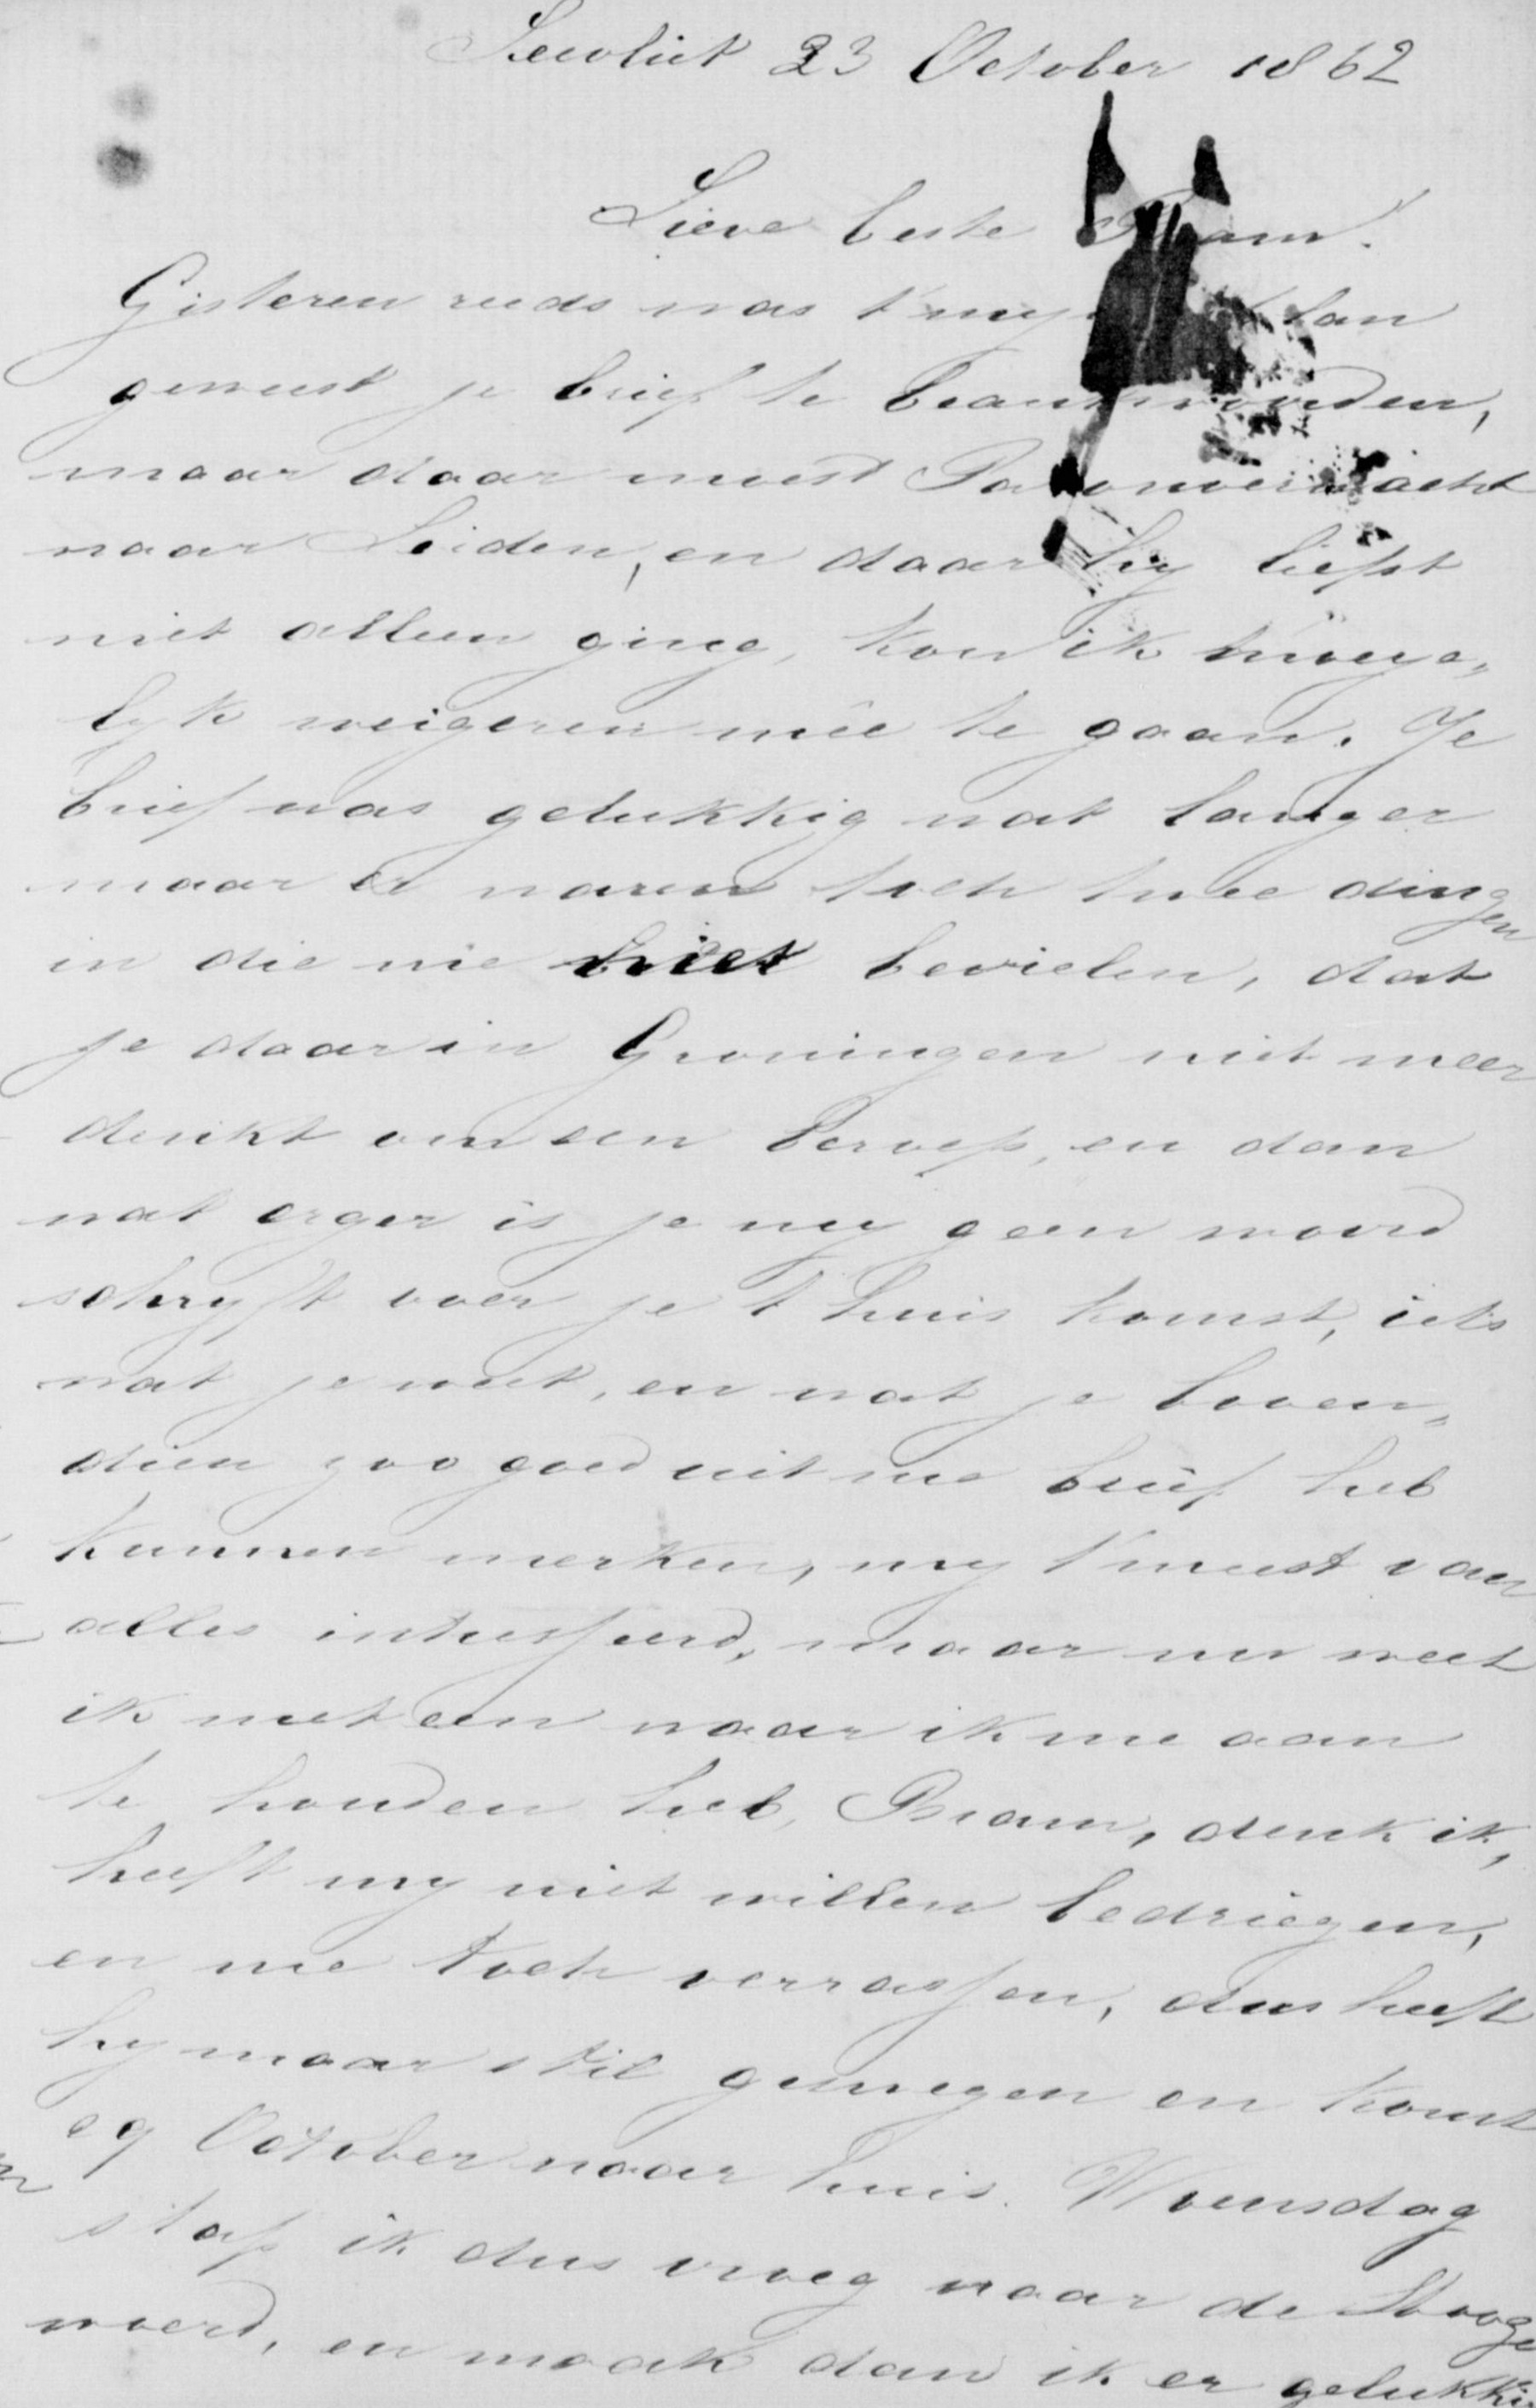 23 October 1862
Lieve beste Bram.
Gisteren reeds was t my plan
geweest je brief te beantwoorden,
maar daar moest Pa onverwacht
naar Leiden, en daar hy liefst
niet alleen ging, kon ik moeye„
lyk weigeren meê te gaan. Je
brief was gelukkig wat langer
maar er waren toch twee dingen
in die me niet bevielen, dat
je daar in Groningen niet meer
denkt om een en dan
wat erger is je my geen woord
schryft over je t huis komst, iets
wat je weet, en wat je boven„
dien zoo goed uit me brief heb
kunnen merken, my t meest van
alles intresseerd, maar nu weet
ik meteen waar ik me aan
te houden heb, Bram, denk ik,
heeft my niet willen bedriegen,
en me toch verrassen, dus heeft
hy maar stil gezwegen en komt
29 October naar huis. Woensdag
stap ik dus vroeg naar de Hooge
woerd, en maak dan ik er gelukki